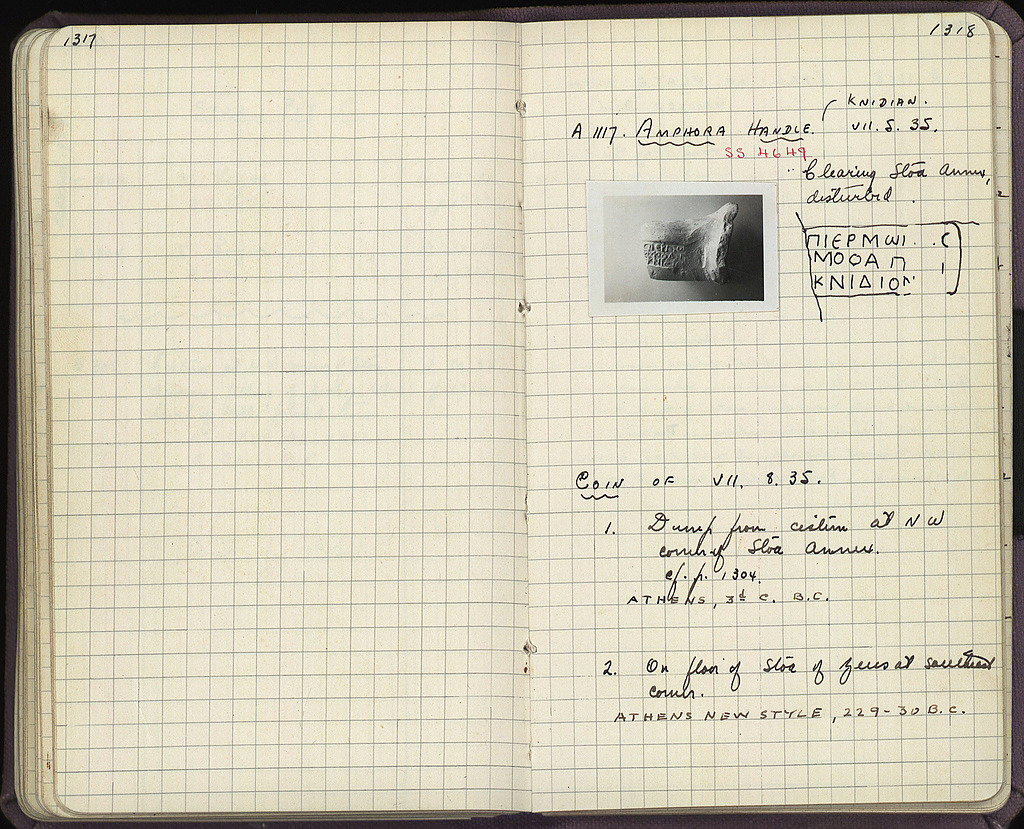 1317
1318
KNIDIAN.
A 1117. AMPHORA HANDLE. VII. 8. 35.
SS 4649
Clearing Stoa Annex,
disturbed.
ΠΙΕΡΜѠΙ . . C
ΜΟΦΑΠ Ι
ΚΝΙΔΙΟΝ
COIN OF VII. 8. 35.
1. Dump from cistern at NW
corner of Stoa Annex.
cf. p. 1304.
ATHENS, 3d C. B.C.
2. On floor of Stoa of Zeus at southeast
corner.
ATHENS NEW STYLE, 229-30 B.C.